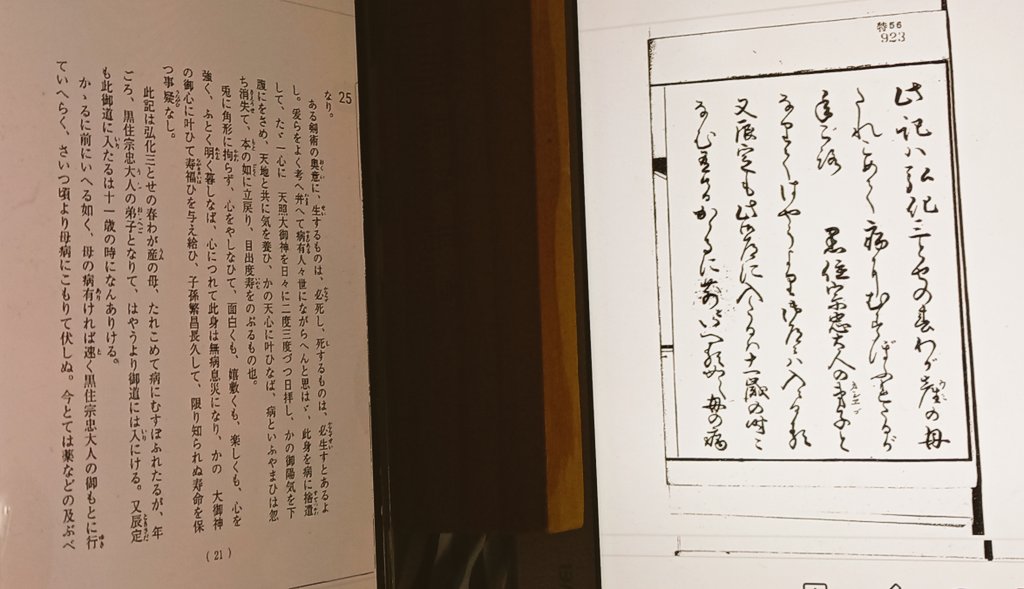 25
なり。
ある剱術の奥意に、生するものは、必死し、死するものは、必生すとあるよ
し。爰らをよく考へ弁へて病有人々世にながらへんと思はゞ、此身を病に捨遣
して、たゞ一心に　天照大御神を日々に二度三度づつ日拝し、かの御陽気を下
腹にをさめ、天地と共に気を養ひ、かの天心に叶ひなば、病といふやまひは忽
ち消失て、本の如に立戻り、目出度寿をのぶるもの也。
兎に角形に拘らず、心をやしなひて、面白くも、嬉敷くも、楽しくも、心を
強く、ふとく明ヶ暮しなば、心につれて此身は無病息災になり、かの　大御神
の御心に叶ひて寿福ひを与え給ひ、子孫繁昌長久して、限り知られぬ寿命を保
つ事疑なし。
此記は弘化三とせの春わが産の母、たれこめて病にむすぼふれたるが、年
ごろ、黒住宗忠大人の弟子となりて、はやうより御道には入にける。又辰定
も此御道に入たるは十一歳の時になんありける。
かゝるに前にいへる如く、母の病有ければ速く黒住宗忠大人の御もとに行
ていへらく、さいつ頃より母病にこもりて伏しぬ。今とては薬などの及ぶべ
(21)
特56
923
此記ハ弘化三とせの春わが産の母
たれこめて病にむすぼふれたるが
年ごろ　黒住宗忠大人の弟子と
なりてはやうより御道にハ入にける
又辰定も此御道に入たるハ十一歳の時に
なむありけるかゝるに前にいへる如く母の病